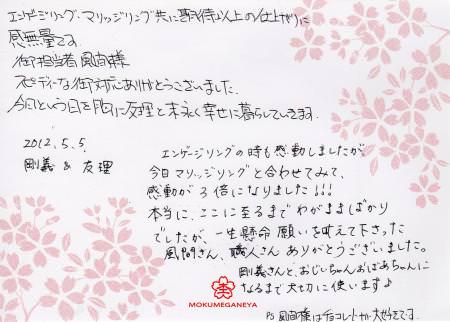 エンゲージリング・マリッジリング共に期待以上の仕上がりに
感無量です。
御担当者 風間様
スピーディーな御対応ありがとうございました。
今日という日を胸に友理と末永く幸せに暮らしていきます。
2012.5.5.
剛義 & 友理
エンゲージリングの時も感動しましたが、
今日マリッジリングと合わせてみて、
感動が3倍になりました!!!
本当に、ここに至るまでわがままばかり
でしたが、一生懸命願いを叶えて下さった
風間さん、職人さんありがとうございました。
剛義さんと、おじいちゃんおばあちゃんに
なるまで大切に使います♪
MOKUMEGANEYA
PS 風間様はチョコレートが大好きです。